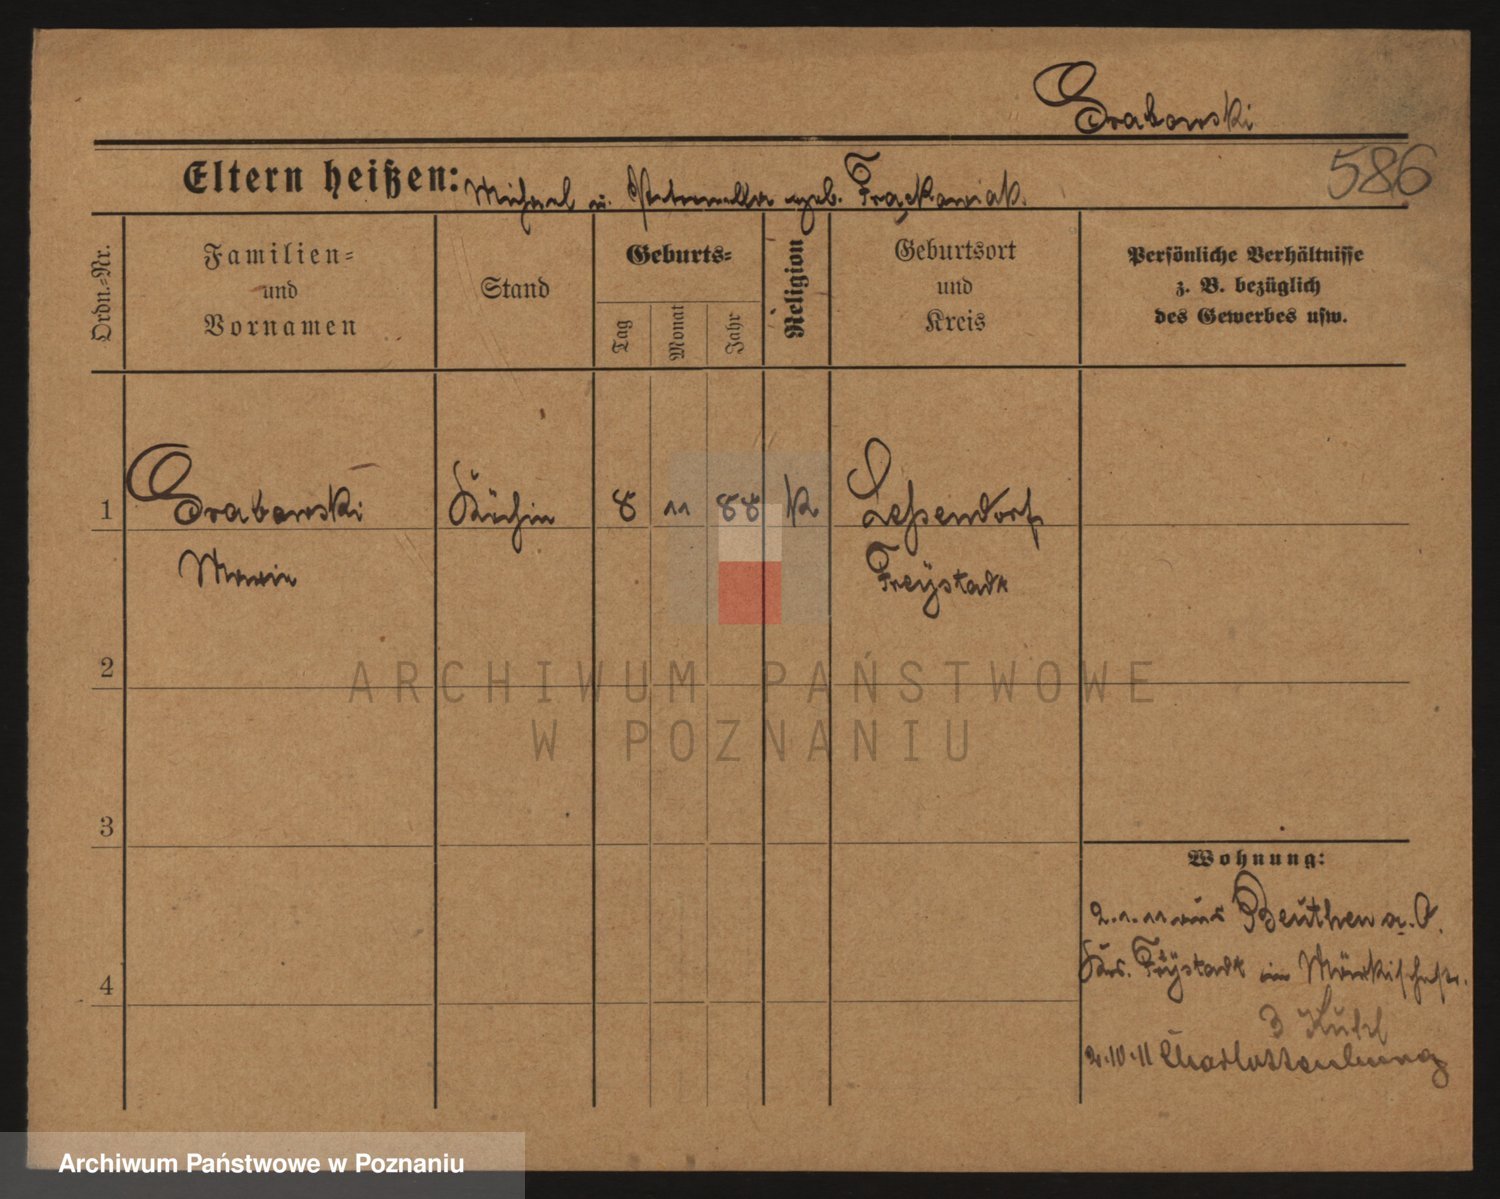 Grabowski
586
Eltern heißen: Michael u. Petronella geb. Frąckowiak.
Ordn.=Nr.
Familien=
und
Vornamen
Stand
Geburts=
Tag
Monat
Jahr
Religion
Geburtsort
und
Kreis
Persönliche Verhältnisse
z. B. bezüglich
des Gewerbes usw.
1 Grabowski Köchin 8 11 88 k Lessendorf
Marie Freystadt
2
ARCHIWUM PAŃSTWOWE
W POZNANIU
3
Wohnung:
2.1.11 aus Beuthen a. O.
Krs. Freystadt in Märkischestr.
4
3
2.10.11 Charlottenburg
Archiwum Państwowe w Poznaniu